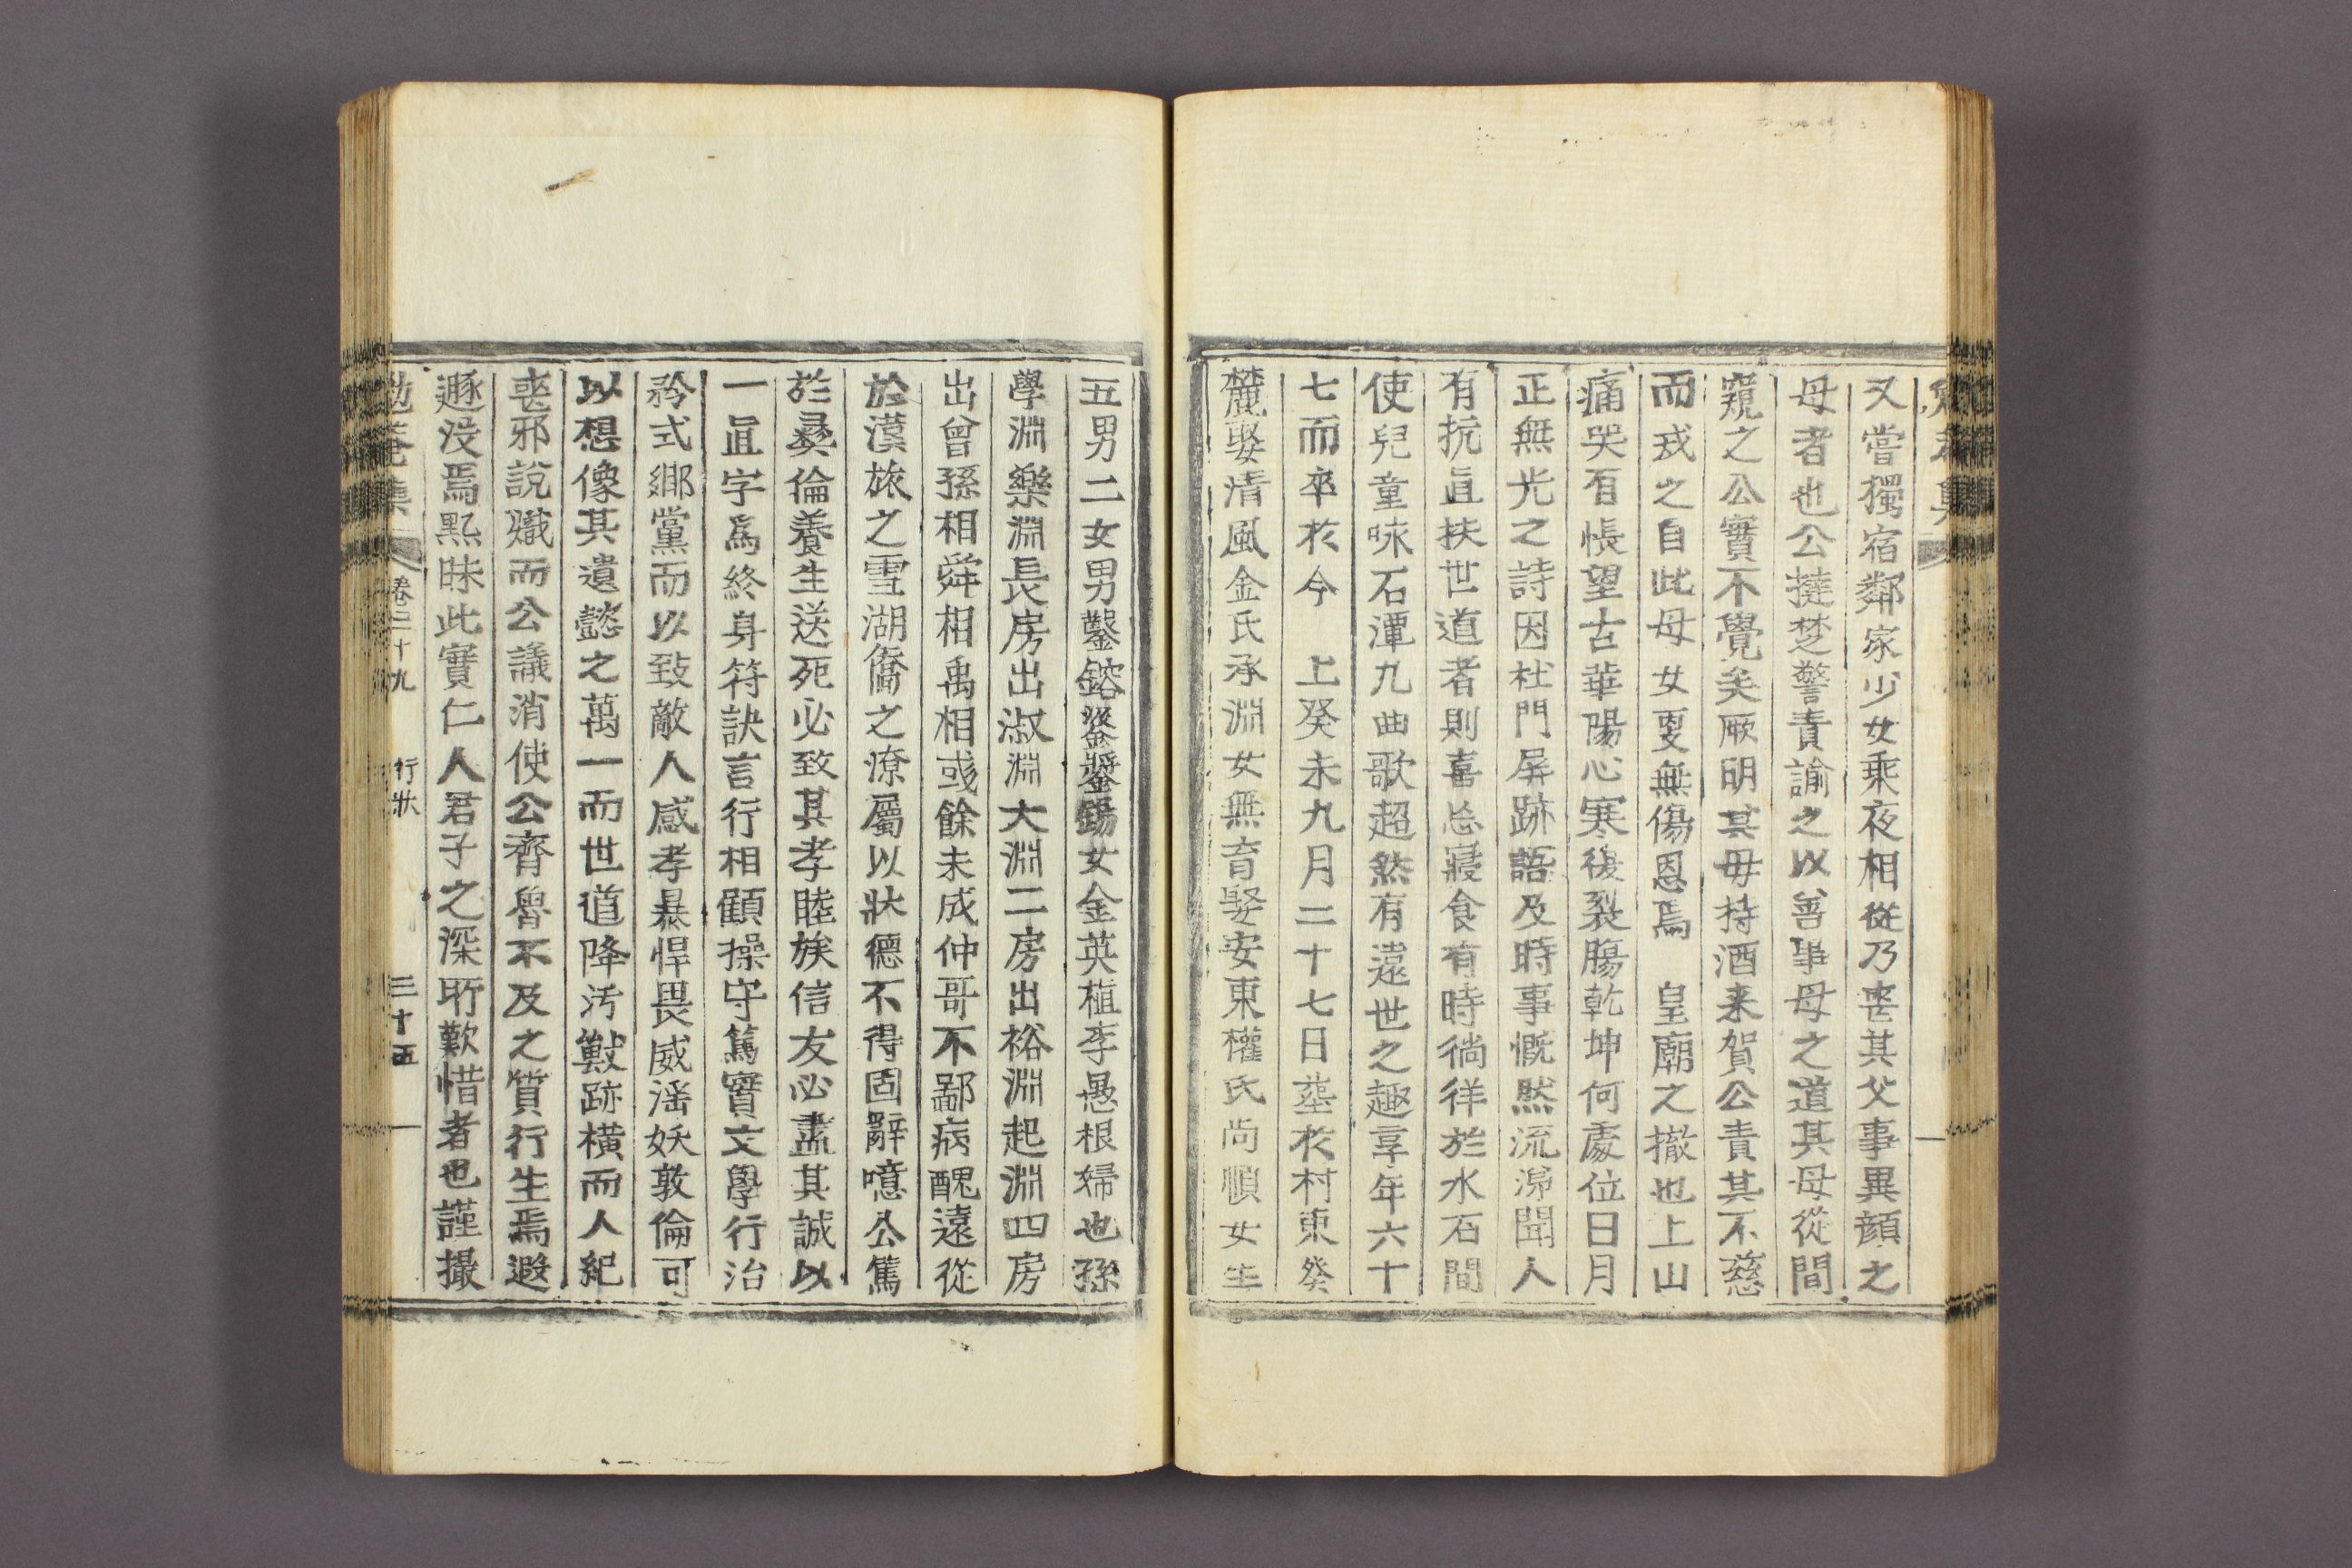 又嘗獨宿鄰家少女乘夜相從乃喪其父事異顔之
母者也公撻楚警責諭之以善事母之道其母從間
窺之公實不覺矣厥明其母持酒来賀公責其不慈
而戒之自此母女更無傷恩焉 皇廟之撤也上山
痛哭有悵望古華陽心寒後裂腸乾坤何處位日月
正無光之詩因杜門屏跡語及時事慨然流涕聞人
有抗直扶世道者則喜忘寢食有時徜徉於水石間
使兒童咏石潭九曲歌超然有遠世之趣享年六十
七而卒於今 上癸未九月二十七日葬於村東癸
麓娶清風金氏承淵女無育娶安東權氏尚愼女生
五男二女男鑿鎔鋈鏘錫女金英植李愚根婦也孫
學淵樂淵長房出淑淵大淵二房出裕淵起淵四房
出曾孫相舜相禹相彧餘未成仲哥不鄙病醜遠從
於漠旅之雪湖僑之潦屬以狀德不得固辭噫公篤
於彛倫養生送死必致其孝睦族信友必盡其誠以
一直字爲終身符訣言行相顧操守篤實文學行治
矜式鄉黨而以致敵人感孝暴悍畏威滛妖敦倫可
以想像其遺懿之萬一而世道降汚獸跡橫而人紀
喪邪說熾而公議消使公齊魯不及之質行生焉遐
遯没焉黙昧此實仁人君子之深所歎惜者也謹撮
勉菴集 卷三十九 行狀 三十五